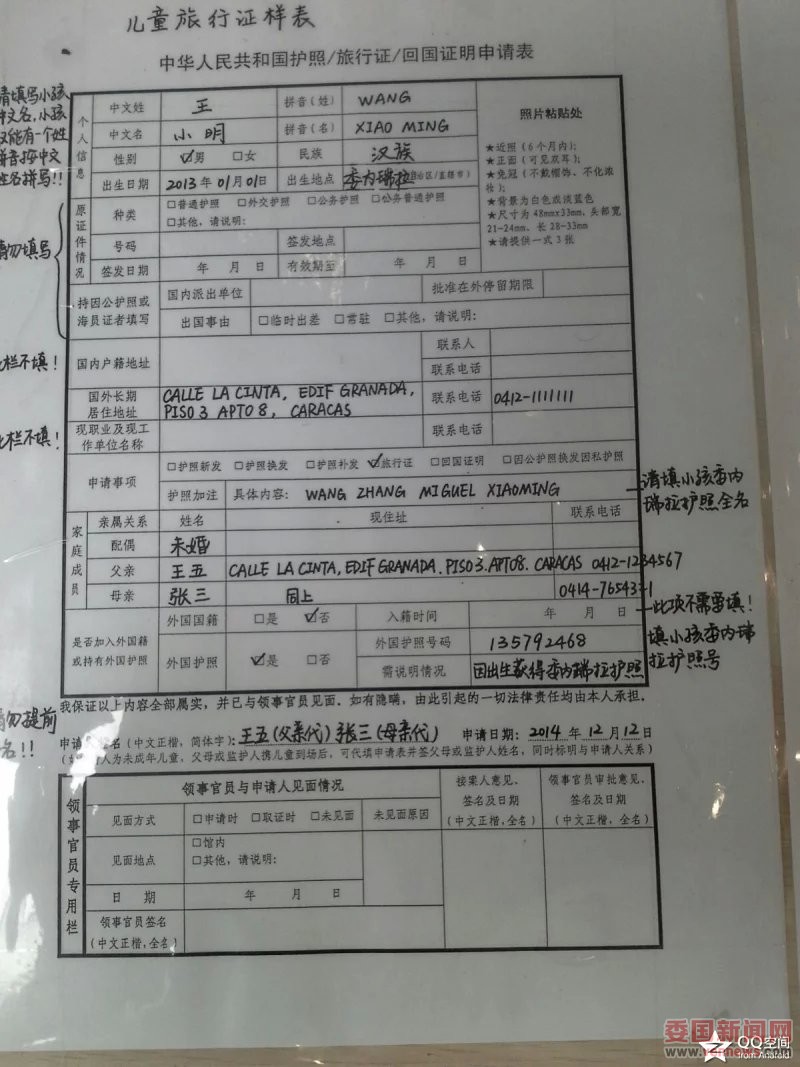 儿童旅行证样表
中华人民共和国护照/旅行证/回国证明申请表
请填写小孩
中文名,小孩
只能有一个姓
拼音按中文
姓名拼写!!
个人信息
中文姓 王 拼音(姓) WANG
中文名 小明 拼音(名) XIAO MING
性别 ☑男 □女 民族 汉族
出生日期 2013年01月01日 出生地点 委内瑞拉
照片粘贴处
★近照(6个月内);
★正面(可见双耳);
★免冠(不戴帽饰、不化浓
妆);
★背景为白色或淡蓝色
★尺寸为48mmx33mm、头部宽
21-24mm、长28-33mm
★请提供一式3张
请勿填写
原证件情况
种类 □普通护照 □外交护照 □公务护照 □公务普通护照
□其他,请说明:
号码 签发地点
签发日期 年 月 日 有效期至 年 月 日
持因公护照或
海员证者填写
国内派出单位 批准在外停留期限
出国事由 □临时出差 □常驻 □其他,请说明:
此栏不填!
国内户籍地址 联系人
联系电话
国外长期
居住地址
CALLE LA CINTA, EDIF GRANADA,
PISO 3 APTO 8, CARACAS
联系电话 0412-1111111
此栏不填!
现职业及现工
作单位名称
联系电话
申请事项 □护照新发 □护照换发 □护照补发 ☑旅行证 □回国证明 □因公护照换发因私护照
护照加注 具体内容: WANG ZHANG MIGUEL XIAOMING
请填小孩委内
瑞拉护照全名
家庭成员
亲属关系 姓名 现住址 联系电话
配偶 未婚
父亲 王五 CALLE LA CINTA, EDIF GRANADA. PISO 3. APTO 8. CARACAS 0412-1234567
母亲 张三 同上
是否加入外国籍
或持有外国护照
外国国籍 □是 ☑否 入籍时间 年 月 日
此项不需要填!
外国护照 ☑是 □否 外国护照号码 135792468
填小孩委内瑞
拉护照号
需说明情况 因出生获得委内瑞拉护照
我保证以上内容全部属实,并已与领事官员见面.如有隐瞒,由此引起的一切法律责任均由本人承担.
请勿提前
签名!!
申请人签名(中文正楷,简体字): 王五(父亲代) 张三(母亲代) 申请日期: 2014年12月12日
(如申请人为未成年儿童,父母或监护人携儿童到场后,可代填申请表并签父母或监护人姓名,同时标明与申请人关系)
领事官员专用栏
领事官员与申请人见面情况
接案人意见、
签名及日期
(中文正楷,全名)
领事官员审批意见、
签名及日期
(中文正楷,全名)
见面方式 □申请时 □取证时 □未见面 未见面原因
见面地点 □馆内
□其他,请说明:
日 期 年 月 日
领事官员签名
(中文正楷,全名)
委国新闻网
QQ空间
from Android